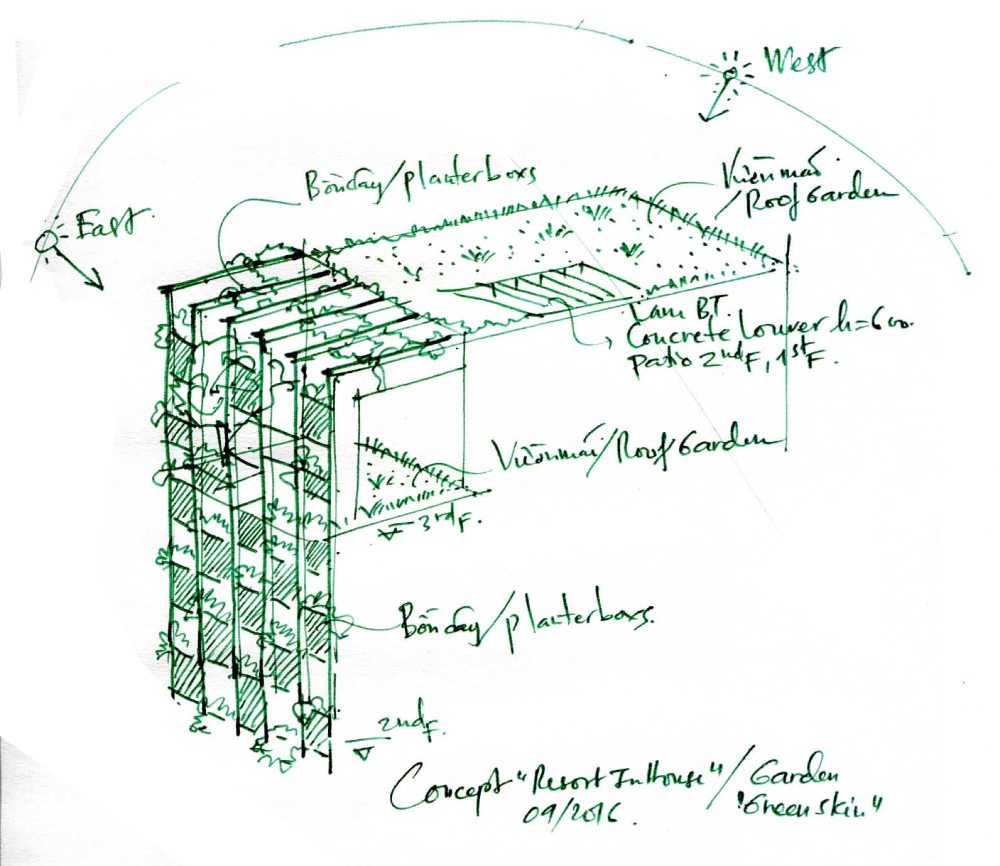 West
Bồn cây/planterboxs
Vườn mái
/Roof Garden
East
Lam BT.
Concrete Louver h=600.
Patio 2nd F, 1st F.
Vườn mái/Roof Garden
3rd F.
Bồn cây/planterboxs.
2nd F.
Concept "Resort In House"/Garden
09/2016. "Green skin"